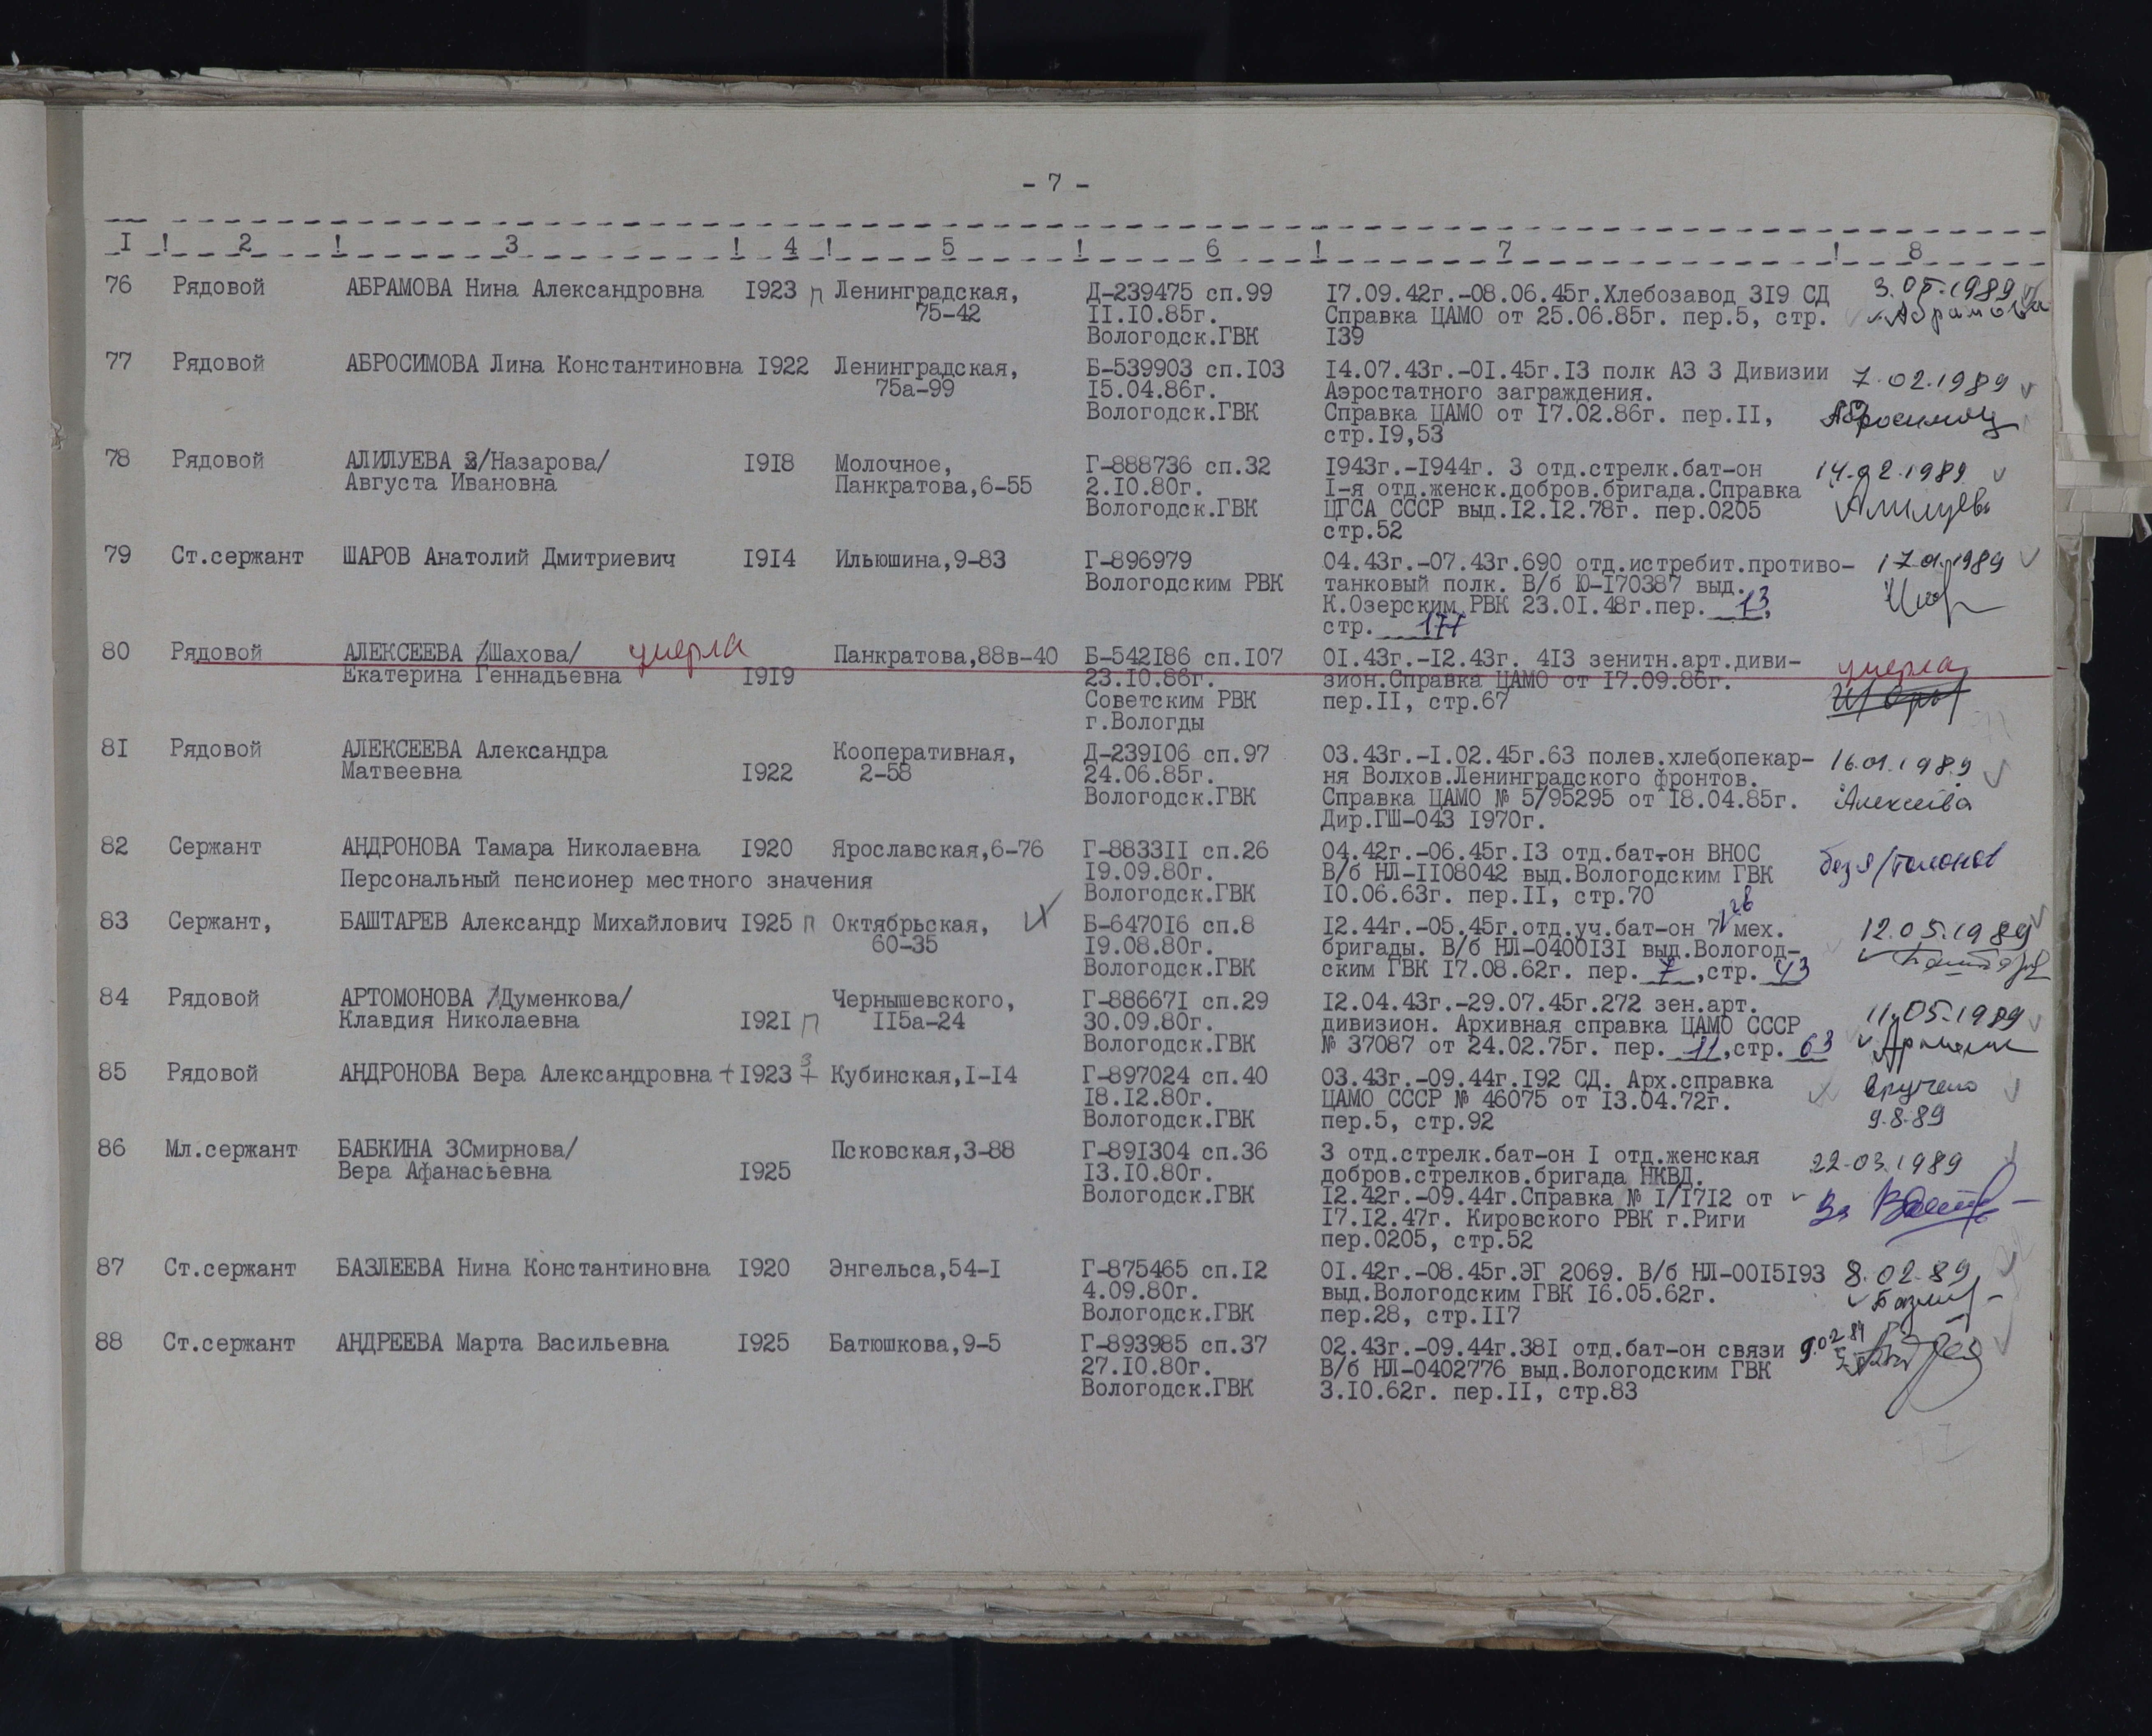 - 7 -
I ! 2 ! 3 ! 4 ! 5 ! 6 ! 7 ! 8
76 Рядовой АБРАМОВА Нина Александровна I923 п Ленинградская, Д-239475 сп.99 I7.09.42г.-08.06.45г.Хлебозавод 3I9 СД 3.05.1989
75-42 II.IO.85г. Справка ЦАМО от 25.06.85г. пер.5, стр. Абрамова
Вологодск.ГВК I39
77 Рядовой АБРОСИМОВА Лина Константиновна I922 Ленинградская, Б-539903 сп.IO3 I4.07.43г.-OI.45г.I3 полк АЗ 3 Дивизии 7.02.1989
75а-99 I5.04.86г. Аэростатного заграждения.
Вологодск.ГВК Справка ЦАМО от I7.02.86г. пер.II, Абросимова
стр.I9,53
78 Рядовой АЛИЛУЕВА З/Назарова/ I9I8 Молочное, Г-888736 сп.32 I943г.-I944г. 3 отд.стрелк.бат-он 14.02.1989
Августа Ивановна Панкратова,6-55 2.IO.80г. I-я отд.женск.добров.бригада.Справка
Вологодск.ГВК ЦГСА СССР выд.I2.I2.78г. пер.0205 Алилуева
стр.52
79 Ст.сержант ШАРОВ Анатолий Дмитриевич I9I4 Ильюшина,9-83 Г-896979 04.43г.-07.43г.690 отд.истребит.противо- 17.01.1989
Вологодским РВК танковый полк. В/б Ю-I70387 выд.
К.Озерским РВК 23.OI.48г.пер. 13, Шар
стр. 177
80 Рядовой АЛЕКСЕЕВА /Шахова/ умерла Панкратова,88в-40 Б-542I86 сп.IO7 OI.43г.-I2.43г. 4I3 зенитн.арт.диви- умерла
Екатерина Геннадьевна I9I9 23.IO.86г. зион.Справка ЦАМО от I7.09.86г.
Советским РВК пер.II, стр.67
г.Вологды
8I Рядовой АЛЕКСЕЕВА Александра Кооперативная, Д-239I06 сп.97 03.43г.-I.02.45г.63 полев.хлебопекар- 16.01.1989
Матвеевна I922 2-58 24.06.85г. ня Волхов.Ленинградского фронтов.
Вологодск.ГВК Справка ЦАМО № 5/95295 от I8.04.85г. Алексеева
Дир.ГШ-043 I970г.
82 Сержант АНДРОНОВА Тамара Николаевна I920 Ярославская,6-76 Г-8833II сп.26 04.42г.-06.45г.I3 отд.бат-он ВНОС без /талонов
Персональный пенсионер местного значения I9.09.80г. В/б НЛ-II08042 выд.Вологодским ГВК
Вологодск.ГВК IO.06.63г. пер.II, стр.70
83 Сержант, БАШТАРЕВ Александр Михайлович I925 п Октябрьская, Б-6470I6 сп.8 I2.44г.-05.45г.отд.уч.бат-он 7 мех. 12.05.1989
60-35 I9.08.80г. бригады. В/б НЛ-0400I3I выд.Вологод-
Вологодск.ГВК ским ГВК I7.08.62г. пер. 7 ,стр. 43
84 Рядовой АРТОМОНОВА /Думенкова/ Чернышевского, Г-88667I сп.29 I2.04.43г.-29.07.45г.272 зен.арт. 11.05.1989
Клавдия Николаевна I92I п II5а-24 30.09.80г. дивизион. Архивная справка ЦАМО СССР
Вологодск.ГВК № 37087 от 24.02.75г. пер. 11 ,стр. 63
85 Рядовой АНДРОНОВА Вера Александровна + I923 Кубинская,I-I4 Г-897024 сп.40 03.43г.-09.44г.I92 СД. Арх.справка вручено
I8.I2.80г. ЦАМО СССР № 46075 от I3.04.72г.
Вологодск.ГВК пер.5, стр.92 9.8.89
86 Мл.сержант БАБКИНА ЗСмирнова/ Псковская,3-88 Г-89I304 сп.36 3 отд.стрелк.бат-он I отд.женская 22.03.1989
Вера Афанасьевна I925 I3.IO.80г. добров.стрелков.бригада НКВД.
Вологодск.ГВК I2.42г.-09.44г.Справка № I/I7I2 от За
I7.I2.47г. Кировского РВК г.Риги
пер.0205, стр.52
87 Ст.сержант БАЗЛЕЕВА Нина Константиновна I920 Энгельса,54-I Г-875465 сп.I2 OI.42г.-08.45г.ЭГ 2069. В/б НЛ-00I5I93 8.02.89
4.09.80г. выд.Вологодским ГВК I6.05.62г.
Вологодск.ГВК пер.28, стр.II7
88 Ст.сержант АНДРЕЕВА Марта Васильевна I925 Батюшкова,9-5 Г-893985 сп.37 02.43г.-09.44г.38I отд.бат-он связи 9.02.89
27.IO.80г. В/б НЛ-0402776 выд.Вологодским ГВК
Вологодск.ГВК 3.IO.62г. пер.II, стр.83